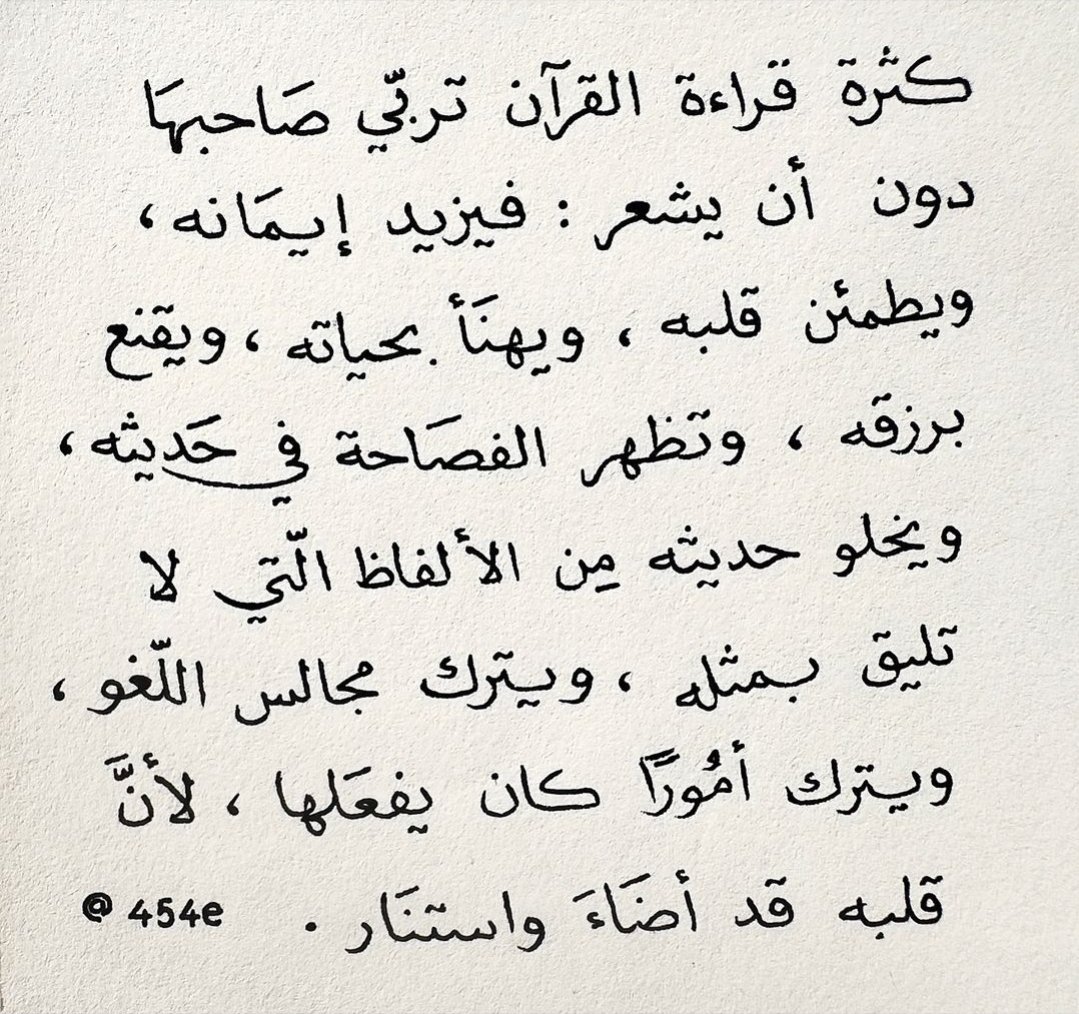 كثرة قراءة القرآن تربّي صَاحبهَا
دون أن يشعر : فيزيد إيمَانه ،
ويطمئن قلبه ، ويهنَأ بحياته ، ويقنع
برزقه ، وتظهر الفصَاحة في حَديثه ،
ويخلو حديثه مِن الألفاظ الّتي لا
تليق بمثله ، ويترك مجالس اللّغو ،
ويترك أمُورًا كان يفعَلها ، لأنَّ
قلبه قد أضَاءَ واستنَار . @454e